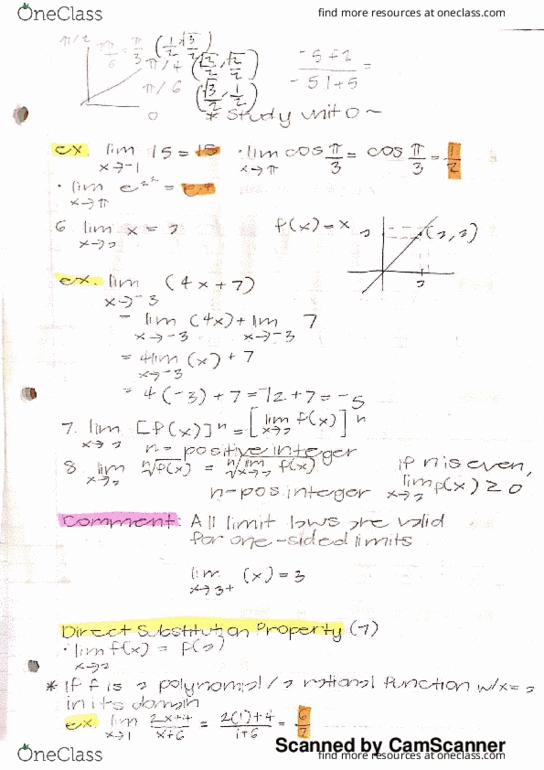 OneClass
find more resources at oneclass.com
π/2
π/3 (1/2, √3/2)
π/4 (√2/2, √2/2)
π/6 (√3/2, 1/2)
0
* Study unit 0 ~
ex. lim x→-1 15 = 15 · lim x→π cos π/3 = cos π/3 = 1/2
6. lim x→a x = a f(x)=x a (a,a) a
ex. lim x→-3 (4x+7)
= lim x→-3 (4x) + lim x→-3 7
= 4 lim x→-3 (x) + 7
= 4(-3)+7 = -12+7 = -5
7. lim x→a [f(x)]ⁿ = [lim x→a f(x)]ⁿ
n = positive integer
8. lim x→a ⁿ√f(x) = ⁿ√lim x→a f(x) if n is even,
n-pos. integer lim x→a f(x) ≥ 0
Comment: All limit laws are valid
for one-sided limits
lim x→3+ (x) = 3
Direct Substitution Property (7)
· lim x→a f(x) = f(a)
* If f is a polynomial / a rational function w/ x=a
in its domain
ex. lim x→1 2x+4/x+6 = 2(1)+4/1+6 = 6/7
Scanned by CamScanner
OneClass
find more resources at oneclass.com